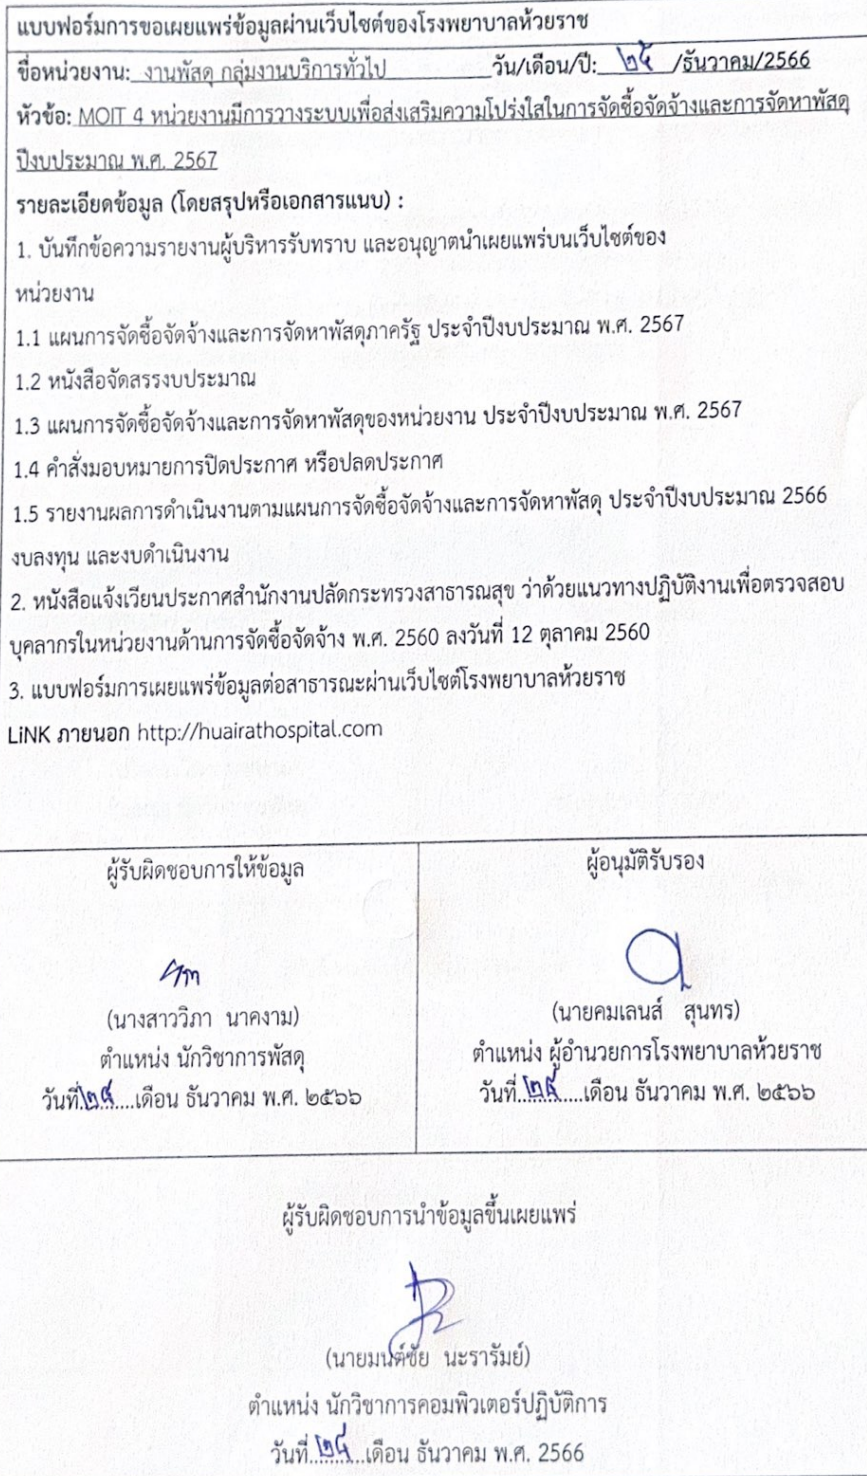 แบบฟอร์มการขอเผยแพร่ข้อมูลผ่านเว็บไซต์ของโรงพยาบาลห้วยราช
ชื่อหน่วยงาน: งานพัสดุ กลุ่มงานบริการทั่วไป วัน/เดือน/ปี: /ธันวาคม/2566
หัวข้อ: MOIT 4 หน่วยงานมีการวางระบบเพื่อส่งเสริมความโปร่งใสในการจัดซื้อจัดจ้างและการจัดหาพัสดุ
ปีงบประมาณ พ.ศ. 2567
รายละเอียดข้อมูล (โดยสรุปหรือเอกสารแนบ) :
1. บันทึกข้อความรายงานผู้บริหารรับทราบ และอนุญาตนำเผยแพร่บนเว็บไซต์ของ
หน่วยงาน
1.1 แผนการจัดซื้อจัดจ้างและการจัดหาพัสดุภาครัฐ ประจำปีงบประมาณ พ.ศ. 2567
1.2 หนังสือจัดสรรงบประมาณ
1.3 แผนการจัดซื้อจัดจ้างและการจัดหาพัสดุของหน่วยงาน ประจำปีงบประมาณ พ.ศ. 2567
1.4 คำสั่งมอบหมายการปิดประกาศ หรือปลดประกาศ
1.5 รายงานผลการดำเนินงานตามแผนการจัดซื้อจัดจ้างและการจัดหาพัสดุ ประจำปีงบประมาณ 2566
งบลงทุน และงบดำเนินงาน
2. หนังสือแจ้งเวียนประกาศสำนักงานปลัดกระทรวงสาธารณสุข ว่าด้วยแนวทางปฏิบัติงานเพื่อตรวจสอบ
บุคลากรในหน่วยงานด้านการจัดซื้อจัดจ้าง พ.ศ. 2560 ลงวันที่ 12 ตุลาคม 2560
3. แบบฟอร์มการเผยแพร่ข้อมูลต่อสาธารณะผ่านเว็บไซต์โรงพยาบาลห้วยราช
LiNK ภายนอก http://huairathospital.com
ผู้รับผิดชอบการให้ข้อมูล
(นางสาววิภา นาคงาม)
ตำแหน่ง นักวิชาการพัสดุ
วันที่.......เดือน ธันวาคม พ.ศ. ๒๕๖๖
ผู้อนุมัติรับรอง
(นายคมเลนส์ สุนทร)
ตำแหน่ง ผู้อำนวยการโรงพยาบาลห้วยราช
วันที่.......เดือน ธันวาคม พ.ศ. ๒๕๖๖
ผู้รับผิดชอบการนำข้อมูลขึ้นเผยแพร่
(นายมนต์ชัย นะรารัมย์)
ตำแหน่ง นักวิชาการคอมพิวเตอร์ปฏิบัติการ
วันที่.......เดือน ธันวาคม พ.ศ. 2566